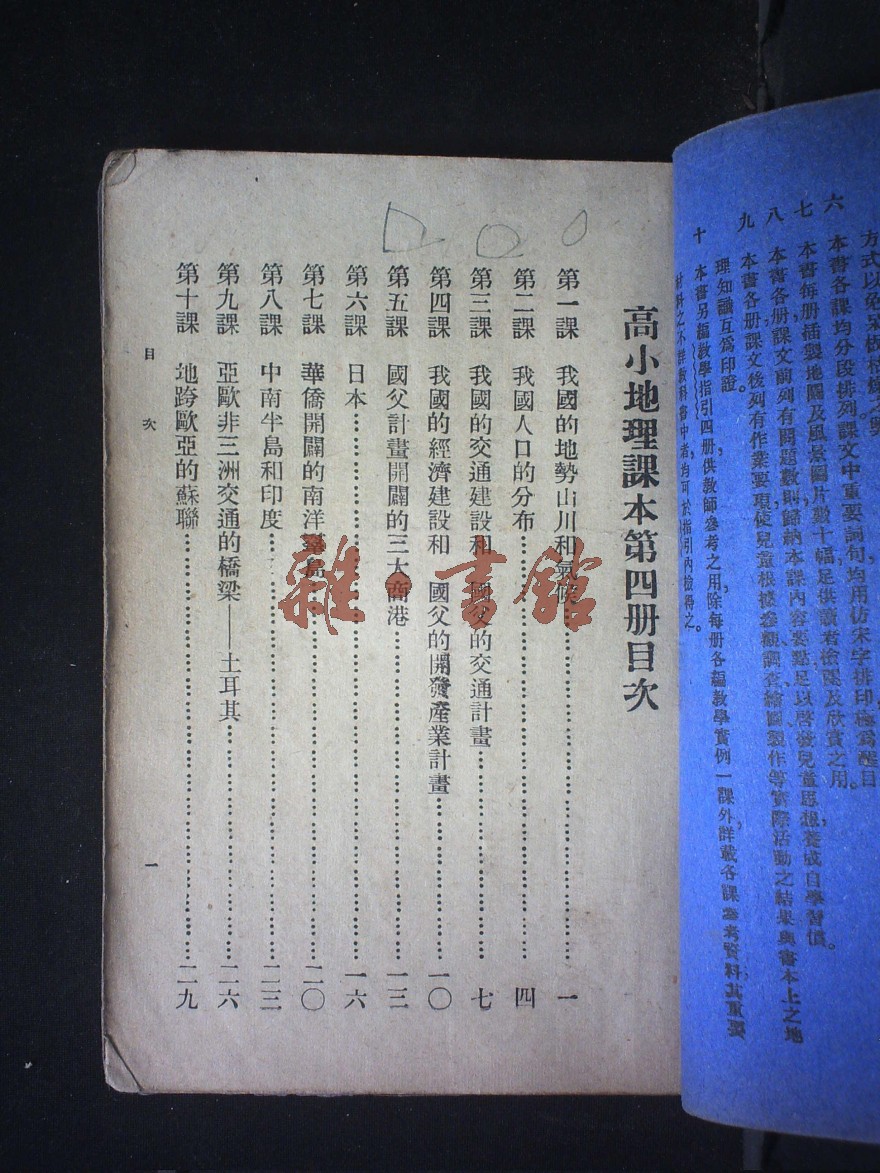 方式以免呆板枯燥之弊
六 本書各課均分段排列課文中重要詞句均用仿宋字排印極爲醒目
七 本書每册插製地圖及風景圖片數十幅足供讀者檢閱及欣賞之用。
八 本書各册課文前列有問題數則歸納本課內容要點足以啓發兒童思想養成自學習慣。
九 本書各册課文後列有作業要項使兒童根據參觀、調查、繪圖、製作等實際活動之結果與書本上之地
理知識互爲印證。
十 本書另編教學指引四册,供教師參考之用除每册各編教學實例一課外,詳載各課參考資料其重要
材料之不詳教科書中者,均可於指引內檢得之。
高小地理課本第四册目次
第一課 我國的地勢山川和氣候……一
第二課 我國人口的分布……四
第三課 我國的交通建設和 國父的交通計畫……七
第四課 我國的經濟建設和 國父的開發產業計畫……一〇
第五課 國父計畫開闢的三大商港……一三
第六課 日本……一六
第七課 華僑開闢的南洋羣島……二〇
第八課 中南半島和印度……二三
第九課 亞歐非三洲交通的橋梁——土耳其……二六
第十課 地跨歐亞的蘇聯……二九
目次 一
雜·書館